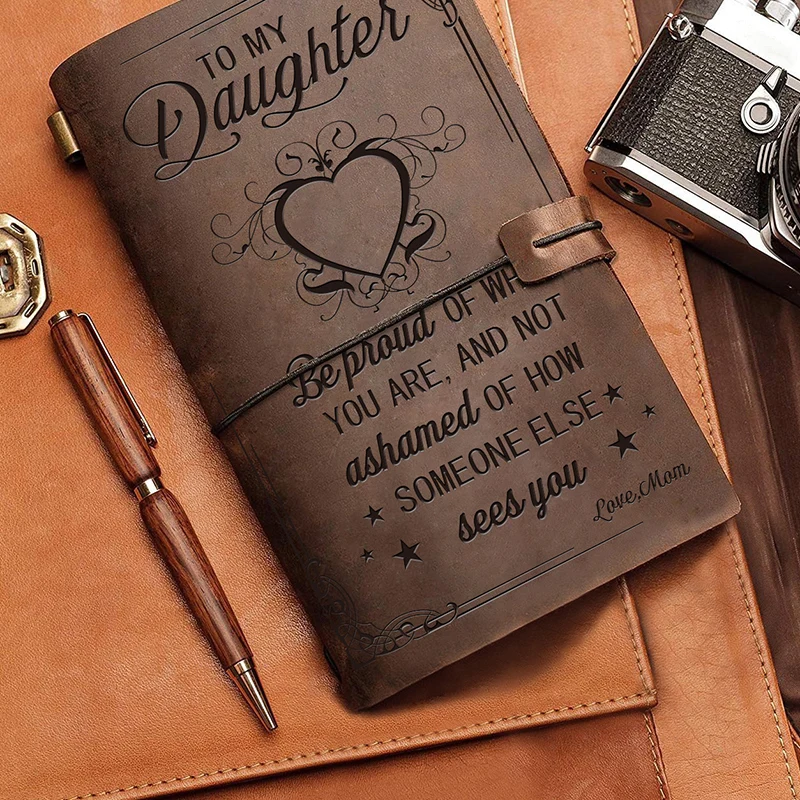 TO MY
Daughter
Be proud OF
YOU ARE, AND NOT
ashamed OF HOW
SOMEONE ELSE
sees you
Love, Mom